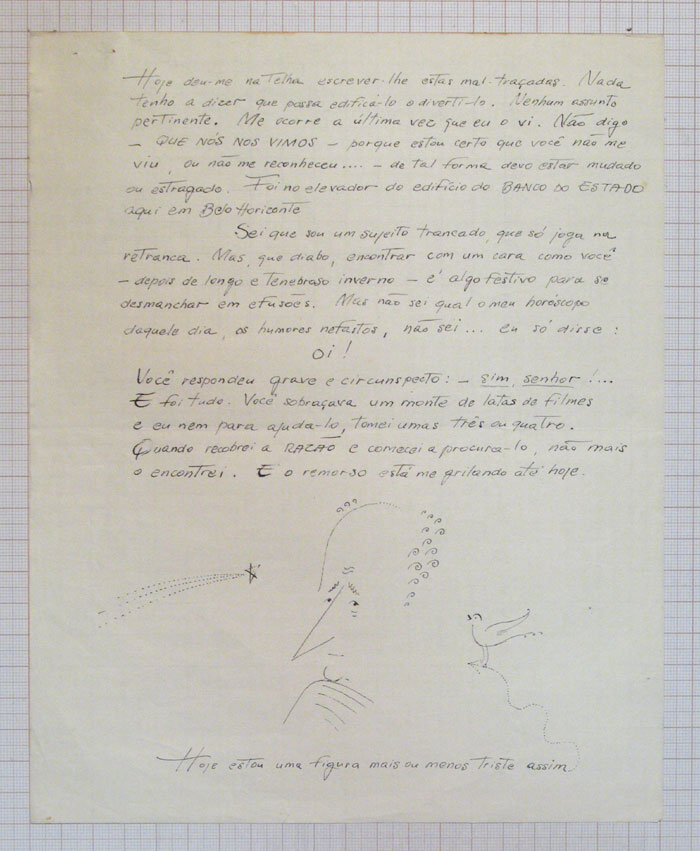 Hoje deu-me na telha escrever-lhe estas mal-traçadas. Nada
tenho a dizer que possa edificá-lo o diverti-lo. Nenhum assunto
pertinente. Me ocorre a última vez que eu o vi. Não digo
- QUE NÓS NOS VIMOS - porque estou certo que você não me
viu, ou não me reconheceu.... - de tal forma devo estar mudado
ou estragado. Foi no elevador do edifício do BANCO DO ESTADO
aqui em Belo Horizonte
Sei que sou um sujeito trancado, que só joga na
retranca. Mas, que diabo, encontrar com um cara como você
- depois de longo e tenebroso inverno - é algo festivo para se
desmanchar em efusões. Mas não sei qual o meu horóscopo
daquele dia, os humores nefastos, não sei... eu só disse:
Oi!
Você respondeu grave e circunspecto: - sim, senhor!...
E foi tudo. Você sobraçava um monte de latas de filmes
e eu nem para ajuda-lo, tomei umas três ou quatro.
Quando recobrei a RAZÃO e comecei a procura-lo, não mais
o encontrei. E o remorso está me grilando até hoje.
Hoje estou uma figura mais ou menos triste assim